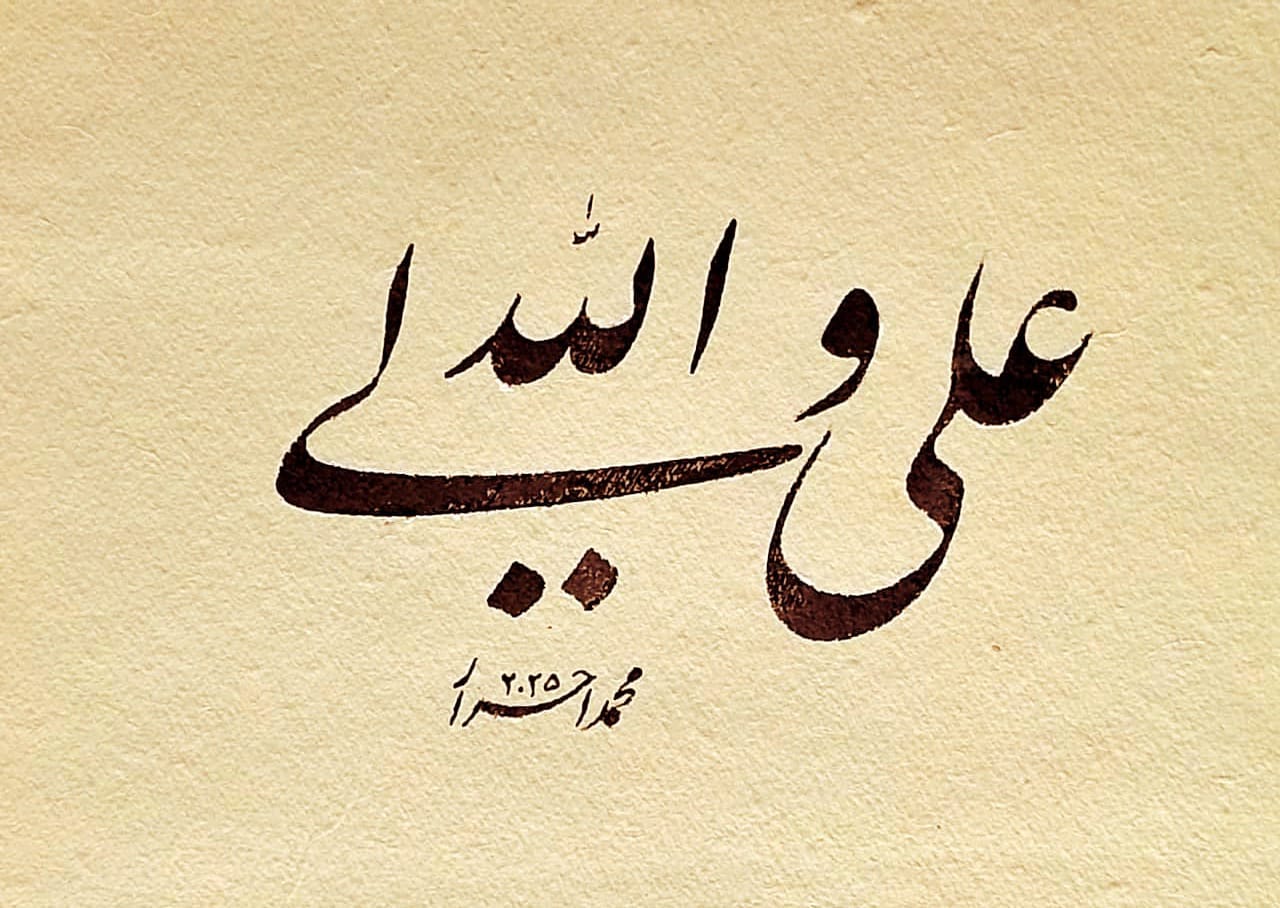 علی ولی الله
محمد احرار ۲۰۲۵